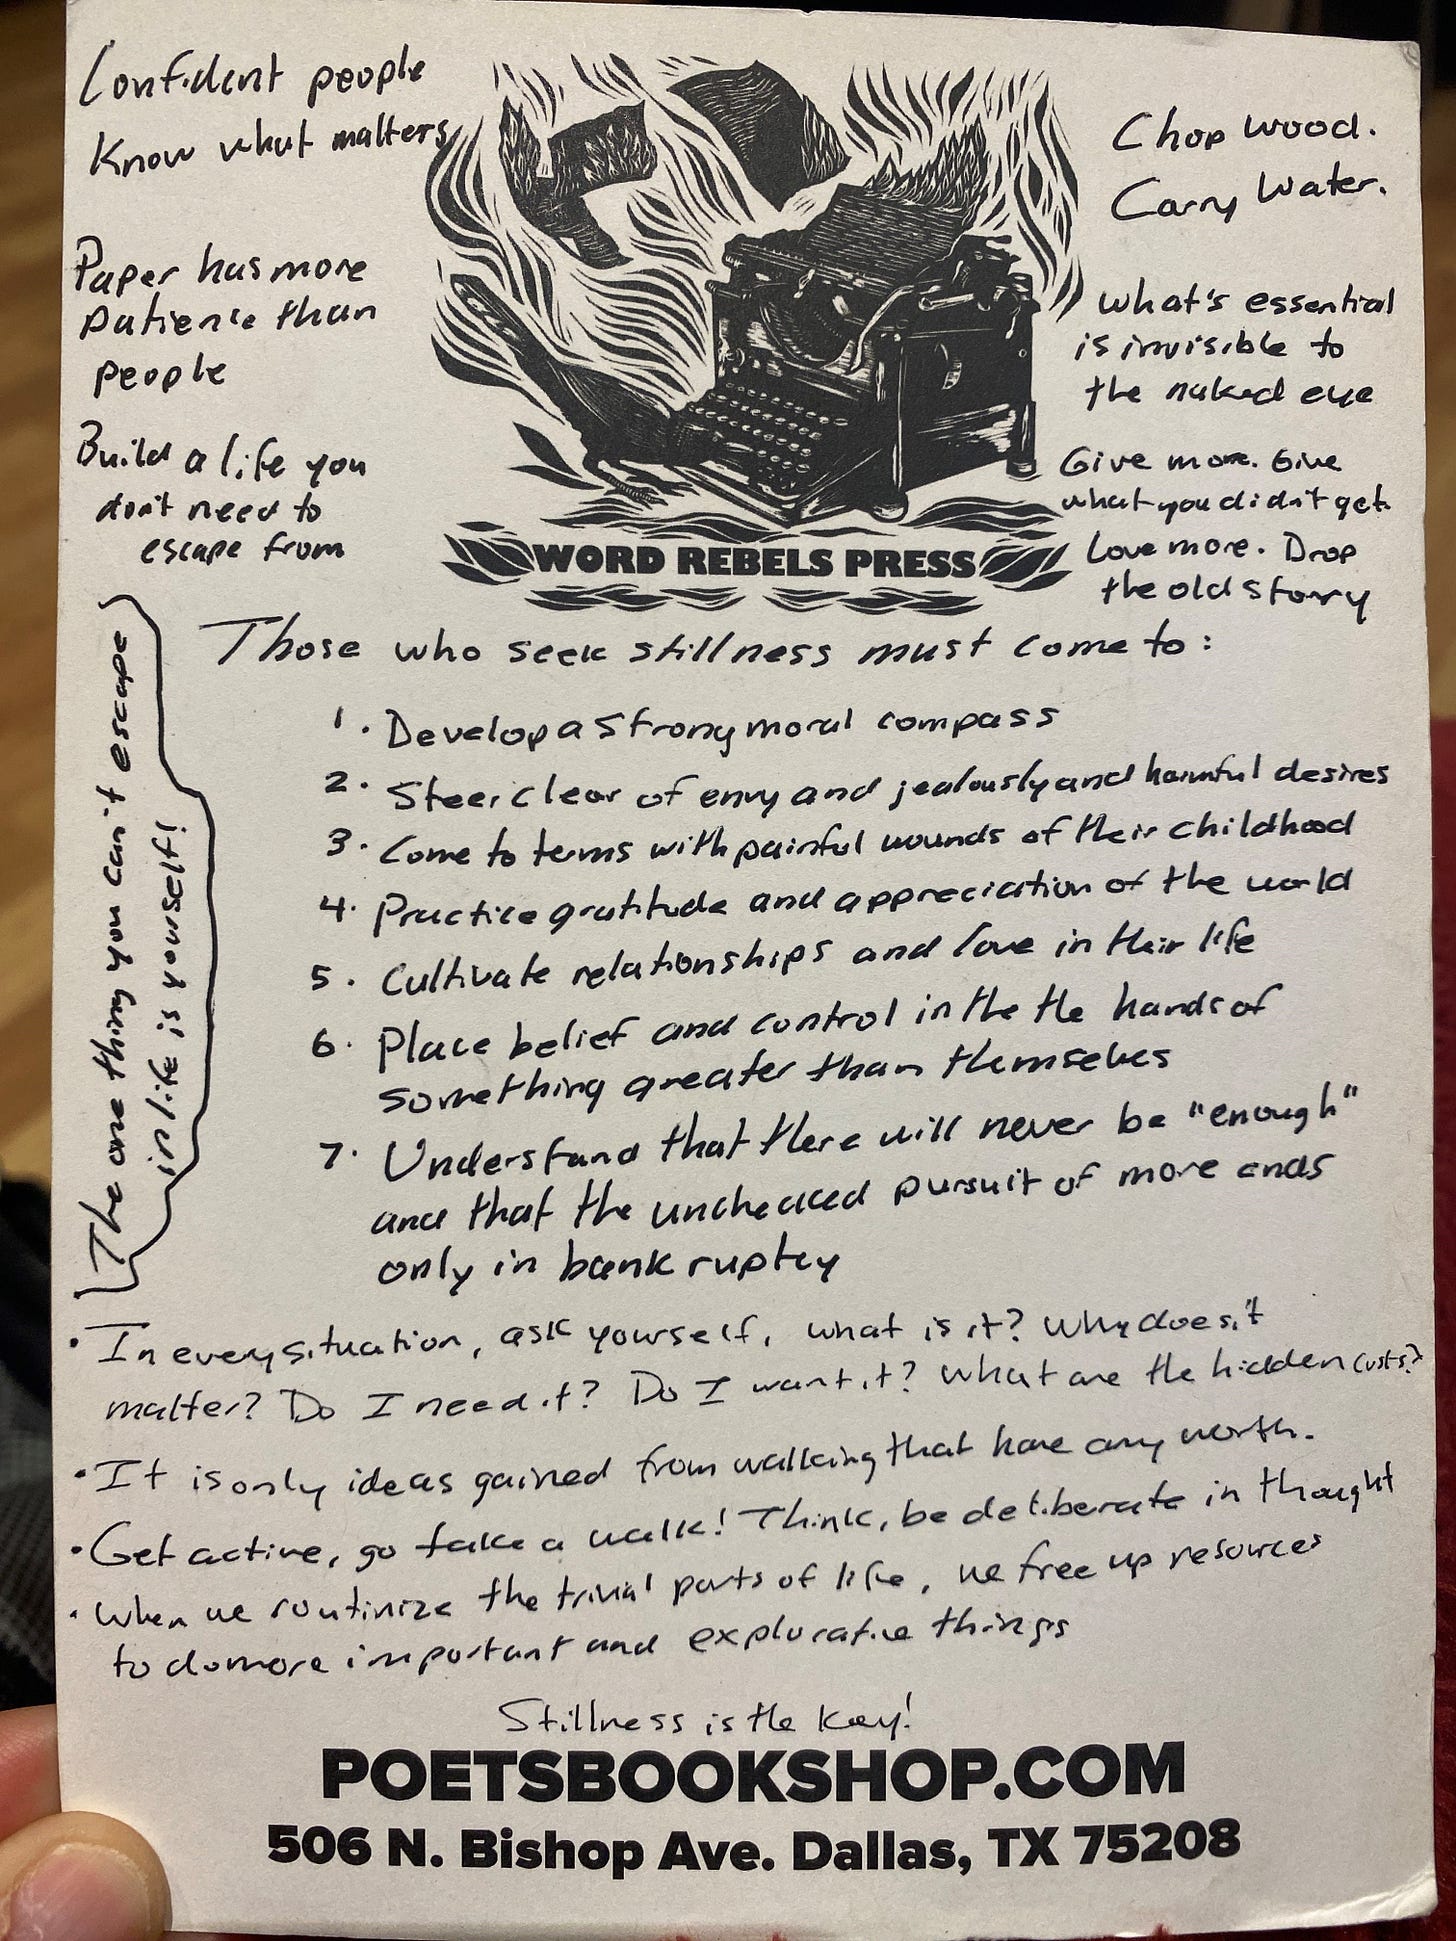 Confident people
Know what matters
Paper has more
patience than
people
Build a life you
don't need to
escape from
Chop wood.
Carry water.
what's essential
is invisible to
the naked eye
Give more. Give
what you didn't get.
Love more. Drop
the old story
WORD REBELS PRESS
The one thing you can't escape
in life is yourself!
Those who seek stillness must come to:
1. Develop a strong moral compass
2. Steer clear of envy and jealously and harmful desires
3. Come to terms with painful wounds of their childhood
4. Practice gratitude and appreciation of the world
5. Cultivate relationships and love in their life
6. Place belief and control in the the hands of
something greater than themselves
7. Understand that there will never be "enough"
and that the unchecked pursuit of more ends
only in bankruptcy
• In every situation, ask yourself, what is it? Why does it
matter? Do I need it? Do I want it? What are the hidden costs?
• It is only ideas gained from walking that have any worth.
• Get active, go take a walk! Think, be deliberate in thought
• When we routinize the trivial parts of life, we free up resources
to do more important and explorative things
Stillness is the Key!
POETSBOOKSHOP.COM
506 N. Bishop Ave. Dallas, TX 75208